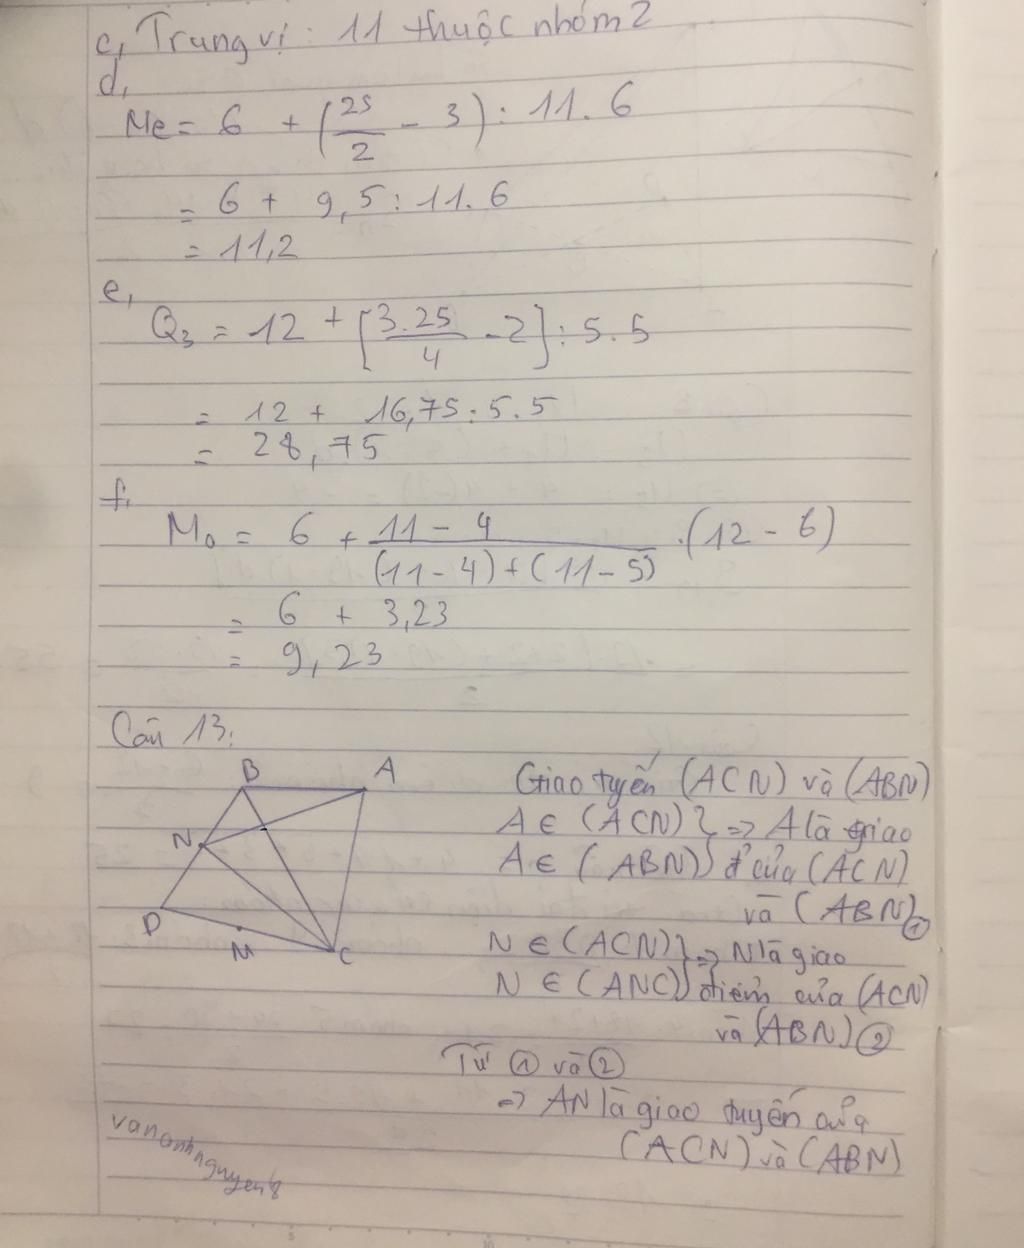 c, Trung vị : 11 thuộc nhóm 2
d,
Me = 6 + (25/2 - 3) : 11 . 6
= 6 + 9,5 : 11 . 6
= 11,2
e,
Q₃ = 12 + [3.25/4 - 2] : 5 . 5
= 12 + 16,75 : 5 . 5
= 28,75
f,
M₀ = 6 + (11 - 4)/((11 - 4) + (11 - 5)) . (12 - 6)
= 6 + 3,23
= 9,23
Câu 13:
B A
N
D M C
Giao tuyến (ACN) và (ABN)
A ∈ (ACN) } => A là giao
A ∈ (ABN) } đ' của (ACN)
và (ABN) ①
N ∈ (ACN) } => N là giao
N ∈ (ANC) } điểm của (ACN)
và (ABN) ②
Từ ① và ②
=> AN là giao tuyến của
(ACN) và (ABN)
vananhnguyen8